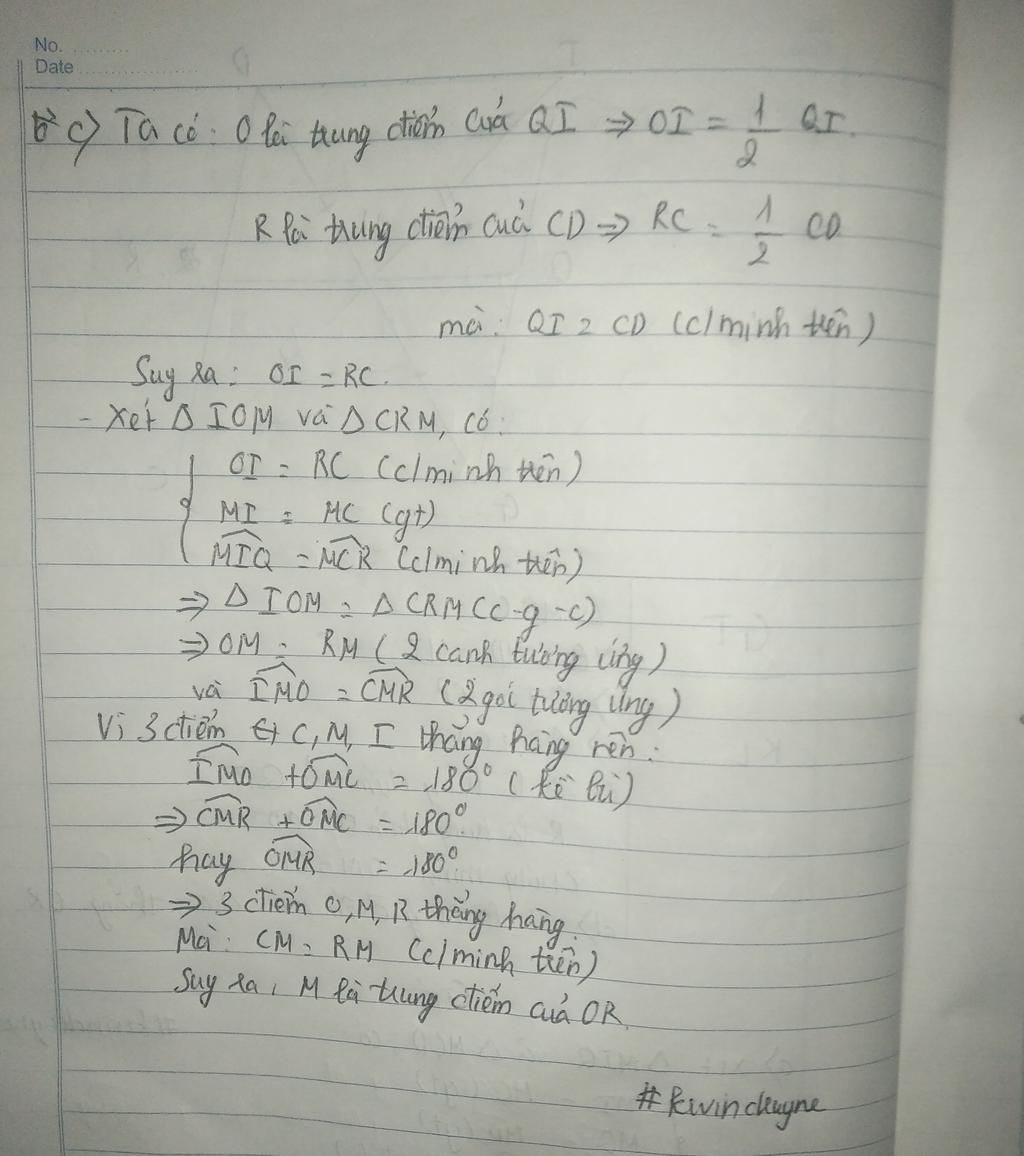 No. ..........
Date ....................
c) Ta có: O là trung điểm của QI ⇒ OI = 1/2 QI.
R là trung điểm của CD ⇒ RC = 1/2 CD
mà: QI = CD (c/minh trên)
Suy ra: OI = RC.
- Xét Δ IOM và Δ CRM, có:
OI = RC (c/minh trên)
MI = MC (gt)
MIQ = MCR (c/minh trên)
⇒ Δ IOM = Δ CRM (c-g-c)
⇒ OM = RM (2 canh tương ứng)
và IMO = CMR (2 gói tương ứng)
Vì 3 điểm C, M, I thẳng hàng nên:
IMO + OMC = 180° (kề bù)
⇒ CMR + OMC = 180°
hay OMR = 180°
⇒ 3 điểm O, M, R thẳng hàng.
Mà: CM = RM (c/minh trên)
Suy ra, M là trung điểm của OR.